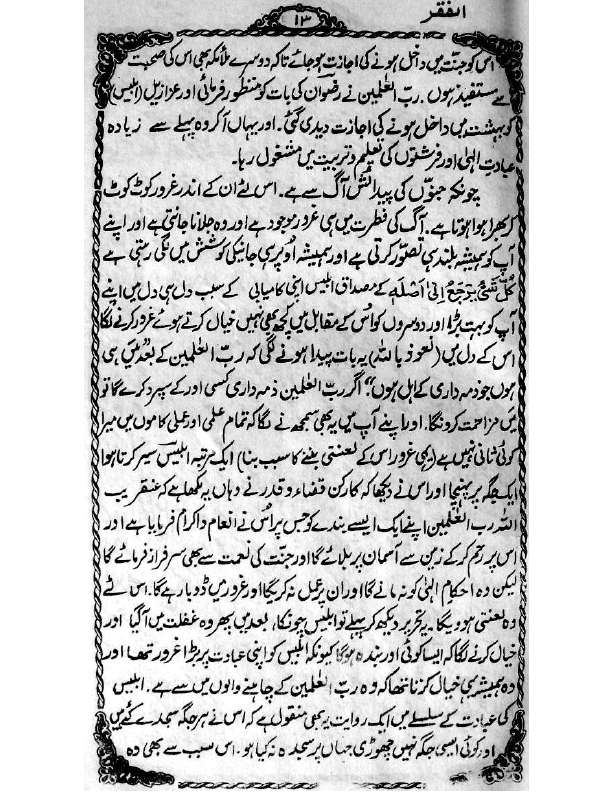 الفقر
۱۳
اس کو جنت میں داخل ہونے کی اجازت ہو جائے تاکہ دوسرے ملائکہ بھی اس کی صحبت
سے مستفیذ ہوں۔ رب العٰلمین نے رضوان کی بات کو منظور فرمائی اور عزازیل (ابلیس)
کو بہشت میں داخل ہونے کی اجازت دیدی گئی۔ اور یہاں آکر وہ پہلے سے زیادہ
عبادت الٰہی اور فرشتوں کی تعلیم و تربیت میں مشغول رہا۔
چونکہ جنوں کی پیدائش آگ سے ہے۔ اس لئے ان کے اندر غرور کوٹ کوٹ
کر بھرا ہوا ہوتا ہے۔ آگ کی فطرت میں ہی غرور موجود ہے اور وہ جلانا جانتی ہے اور اپنے
آپ کو ہمیشہ بلند ہی تصور کرتی ہے اور ہمیشہ اوپر ہی جانیکی کوشش میں لگی رہتی ہے
كُلُّ شَيْءٍ يَرْجِعُ اِلٰى اَصْلِهٖ کے مصداق ابلیس اپنی کامیابی کے سبب دل ہی دل میں اپنے
آپ کو بہت بڑا اور دوسروں کو اس کے مقابل میں کچھ بھی نہیں خیال کرتے ہوئے غرور کرنے لگا
اس کے دل میں (نعوذ باللہ) یہ بات پیدا ہونے لگی کہ رب العٰلمین کے بعد میں ہی
ہوں جو ذمہ داری کے اہل ہوں" اگر رب العٰلمین ذمہ داری کسی اور کے سپرد کرے گا تو
میں مزاحمت کرونگا۔ اور اپنے آپ میں یہ بھی سمجھنے لگا کہ تمام علمی اور عملی کاموں میں میرا
کوئی ثانی نہیں ہے (یہی غرور اس کے لعنتی بننے کا سبب بنا) ایک مرتبہ ابلیس سیر کرتا ہوا
ایک جگہ پر پہنچا اور اس نے دیکھا کہ کارکن قضاء و قدر نے وہاں یہ لکھا ہے کہ عنقریب
اللہ رب العٰلمین اپنے ایک ایسے بندے کو جس پر اُس نے انعام و اکرام فرمایا ہے اور
اس پر رحم کر کے زمین سے آسمان پر بلائے گا اور جنت کی نعمت سے بھی سرفراز فرمائے گا
لیکن وہ احکام الٰہی کو نہ مانے گا اور ان پر عمل نہ کریگا اور غرور میں ڈوبا رہے گا۔ اس لئے
وہ لعنتی ہوویگا۔ یہ تحریر دیکھ کر پہلے تو ابلیس چونکا، بعد میں پھر وہ غفلت میں آگیا اور
خیال کرنے لگا کہ ایسا کوئی اور بندہ ہوگا کیونکہ ابلیس کو اپنی عبادت پر بڑا غرور تھا اور
وہ ہمیشہ یہی خیال کرتا تھا کہ وہ رب العٰلمین کے چاہنے والوں میں سے ہے۔ ابلیس
کی عبادت کے سلسلے میں ایک روایت یہ بھی منقول ہے کہ اس نے ہر جگہ سجدے کئے ہیں
اور کوئی ایسی جگہ نہیں چھوڑی جہاں پر سجدہ نہ کیا ہو۔ اس سبب سے بھی وہ